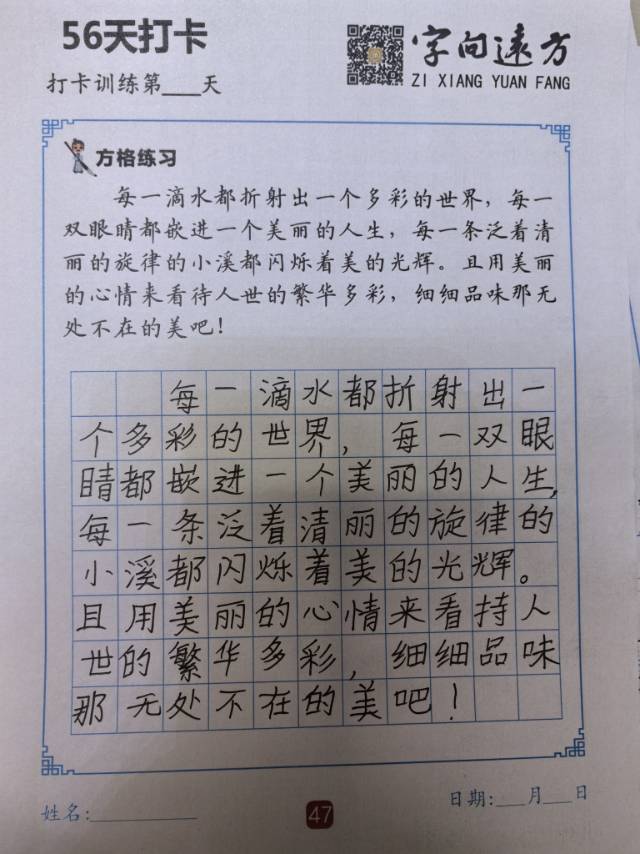 56天打卡
打卡训练第___天
字向远方
ZI XIANG YUAN FANG
方格练习
每一滴水都折射出一个多彩的世界，每一
双眼睛都嵌进一个美丽的人生，每一条泛着清
丽的旋律的小溪都闪烁着美的光辉。且用美丽
的心情来看待人世的繁华多彩，细细品味那无
处不在的美吧！
每一滴水都折射出一
个多彩的世界，每一双眼
睛都嵌进一个美丽的人生，
每一条泛着清丽的旋律的
小溪都闪烁着美的光辉。
且用美丽的心情来看持人
世的繁华多彩，细细品味
那无处不在的美吧！
姓名:___________
47
日期:___月___日